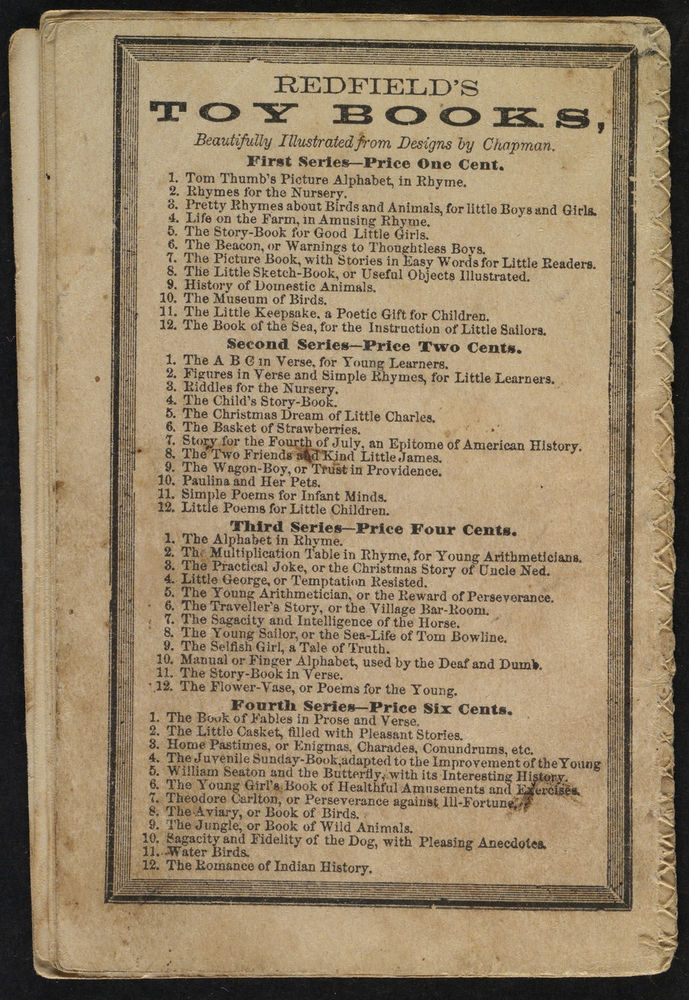 REDFIELD'S
TOY BOOKS,
Beautifully Illustrated from Designs by Chapman.
First Series—Price One Cent.
1. Tom Thumb's Picture Alphabet, in Rhyme.
2. Rhymes for the Nursery.
3. Pretty Rhymes about Birds and Animals, for little Boys and Girls.
4. Life on the Farm, in Amusing Rhyme.
5. The Story-Book for Good Little Girls.
6. The Beacon, or Warnings to Thoughtless Boys.
7. The Picture Book, with Stories in Easy Words for Little Readers.
8. The Little Sketch-Book, or Useful Objects Illustrated.
9. History of Domestic Animals.
10. The Museum of Birds.
11. The Little Keepsake, a Poetic Gift for Children.
12. The Book of the Sea, for the Instruction of Little Sailors.
Second Series—Price Two Cents.
1. The A B C in Verse, for Young Learners.
2. Figures in Verse and Simple Rhymes, for Little Learners.
3. Riddles for the Nursery.
4. The Child's Story-Book.
5. The Christmas Dream of Little Charles.
6. The Basket of Strawberries.
7. Story for the Fourth of July, an Epitome of American History.
8. The Two Friends and Kind Little James.
9. The Wagon-Boy, or Trust in Providence.
10. Paulina and Her Pets.
11. Simple Poems for Infant Minds.
12. Little Poems for Little Children.
Third Series—Price Four Cents.
1. The Alphabet in Rhyme.
2. The Multiplication Table in Rhyme, for Young Arithmeticians.
3. The Practical Joke, or the Christmas Story of Uncle Ned.
4. Little George, or Temptation Resisted.
5. The Young Arithmetician, or the Reward of Perseverance.
6. The Traveller's Story, or the Village Bar-Room.
7. The Sagacity and Intelligence of the Horse.
8. The Young Sailor, or the Sea-Life of Tom Bowline.
9. The Selfish Girl, a Tale of Truth.
10. Manual or Finger Alphabet, used by the Deaf and Dumb.
11. The Story-Book in Verse.
12. The Flower-Vase, or Poems for the Young.
Fourth Series—Price Six Cents.
1. The Book of Fables in Prose and Verse.
2. The Little Casket, filled with Pleasant Stories.
3. Home Pastimes, or Enigmas, Charades, Conundrums, etc.
4. The Juvenile Sunday-Book, adapted to the Improvement of the Young
5. William Seaton and the Butterfly, with its Interesting History.
6. The Young Girl's Book of Healthful Amusements and Exercises.
7. Theodore Carlton, or Perseverance against Ill-Fortune.
8. The Aviary, or Book of Birds.
9. The Jungle, or Book of Wild Animals.
10. Sagacity and Fidelity of the Dog, with Pleasing Anecdotes.
11. Water Birds.
12. The Romance of Indian History.